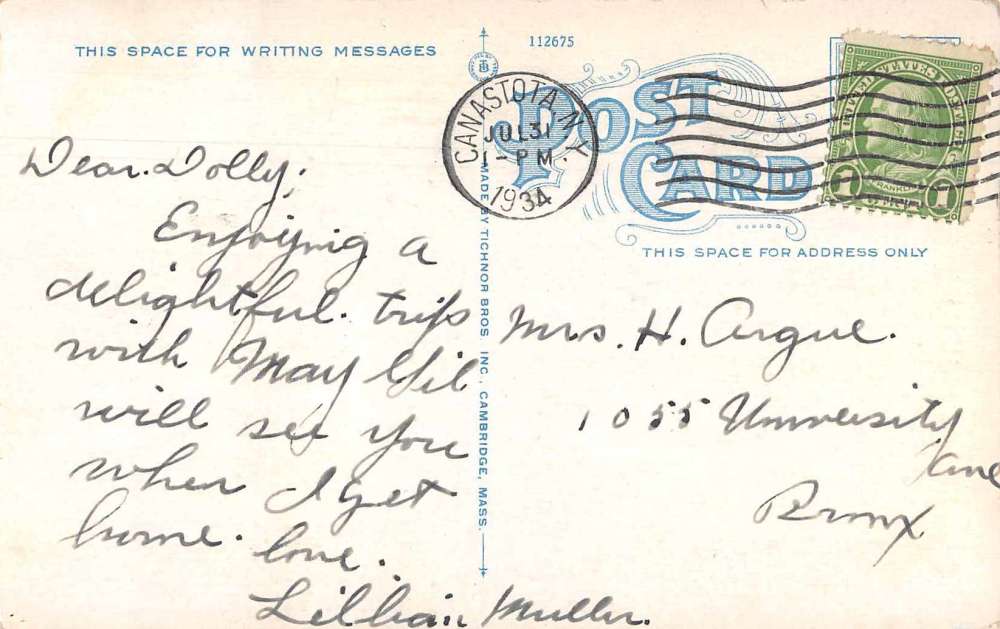 THIS SPACE FOR WRITING MESSAGES
112675
POST CARD
THIS SPACE FOR ADDRESS ONLY
CANASTOTA N.Y.
JUL 31
1 - PM
1934
UNITED STATES POSTAGE
FRANKLIN
1 1
MADE BY TICHNOR BROS. INC., CAMBRIDGE, MASS.
Dear Dolly,
Enjoying a
delightful trip
with May Gil
will see you
when I get
home. love.
Lillian Muller.
Mrs. H. Argue.
1055 University
Ave
Bronx